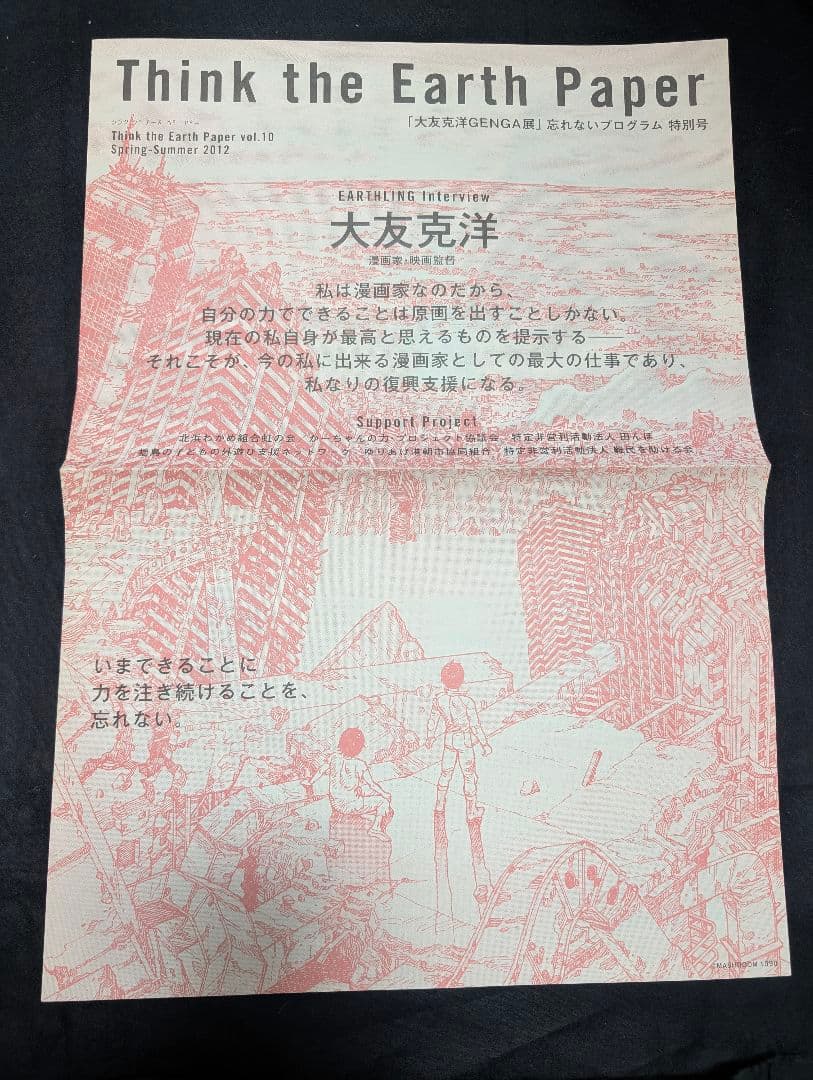 Think the Earth Paper
「大友克洋GENGA展」忘れないプログラム 特別号
シンク・ジ・アース ペーパー
Think the Earth Paper vol.10
Spring-Summer 2012
EARTHLING Interview
大友克洋
漫画家・映画監督
私は漫画家なのだから、
自分の力でできることは原画を出すことしかない。
現在の私自身が最高と思えるものを提示する——
それこそが、今の私に出来る漫画家としての最大の仕事であり、
私なりの復興支援になる。
Support Project
北浜わかめ組合虹の会／かーちゃんの力・プロジェクト協議会／特定非営利活動法人 田んぼ
福島の子どもの外遊び支援ネットワーク／ゆりあげ港朝市協同組合／特定非営利活動法人 難民を助ける会
いまできることに
力を注ぎ続けることを、
忘れない。
©MASHROOM 1990